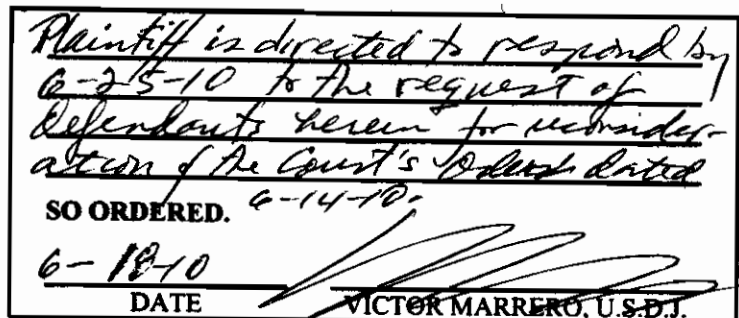 Plaintiff is directed to respond by
6-25-10 to the request of
defendants herein for reconsider-
ation of the Court's Order dated
SO ORDERED. 6-14-10.
6-18-10
DATE VICTOR MARRERO, U.S.D.J.